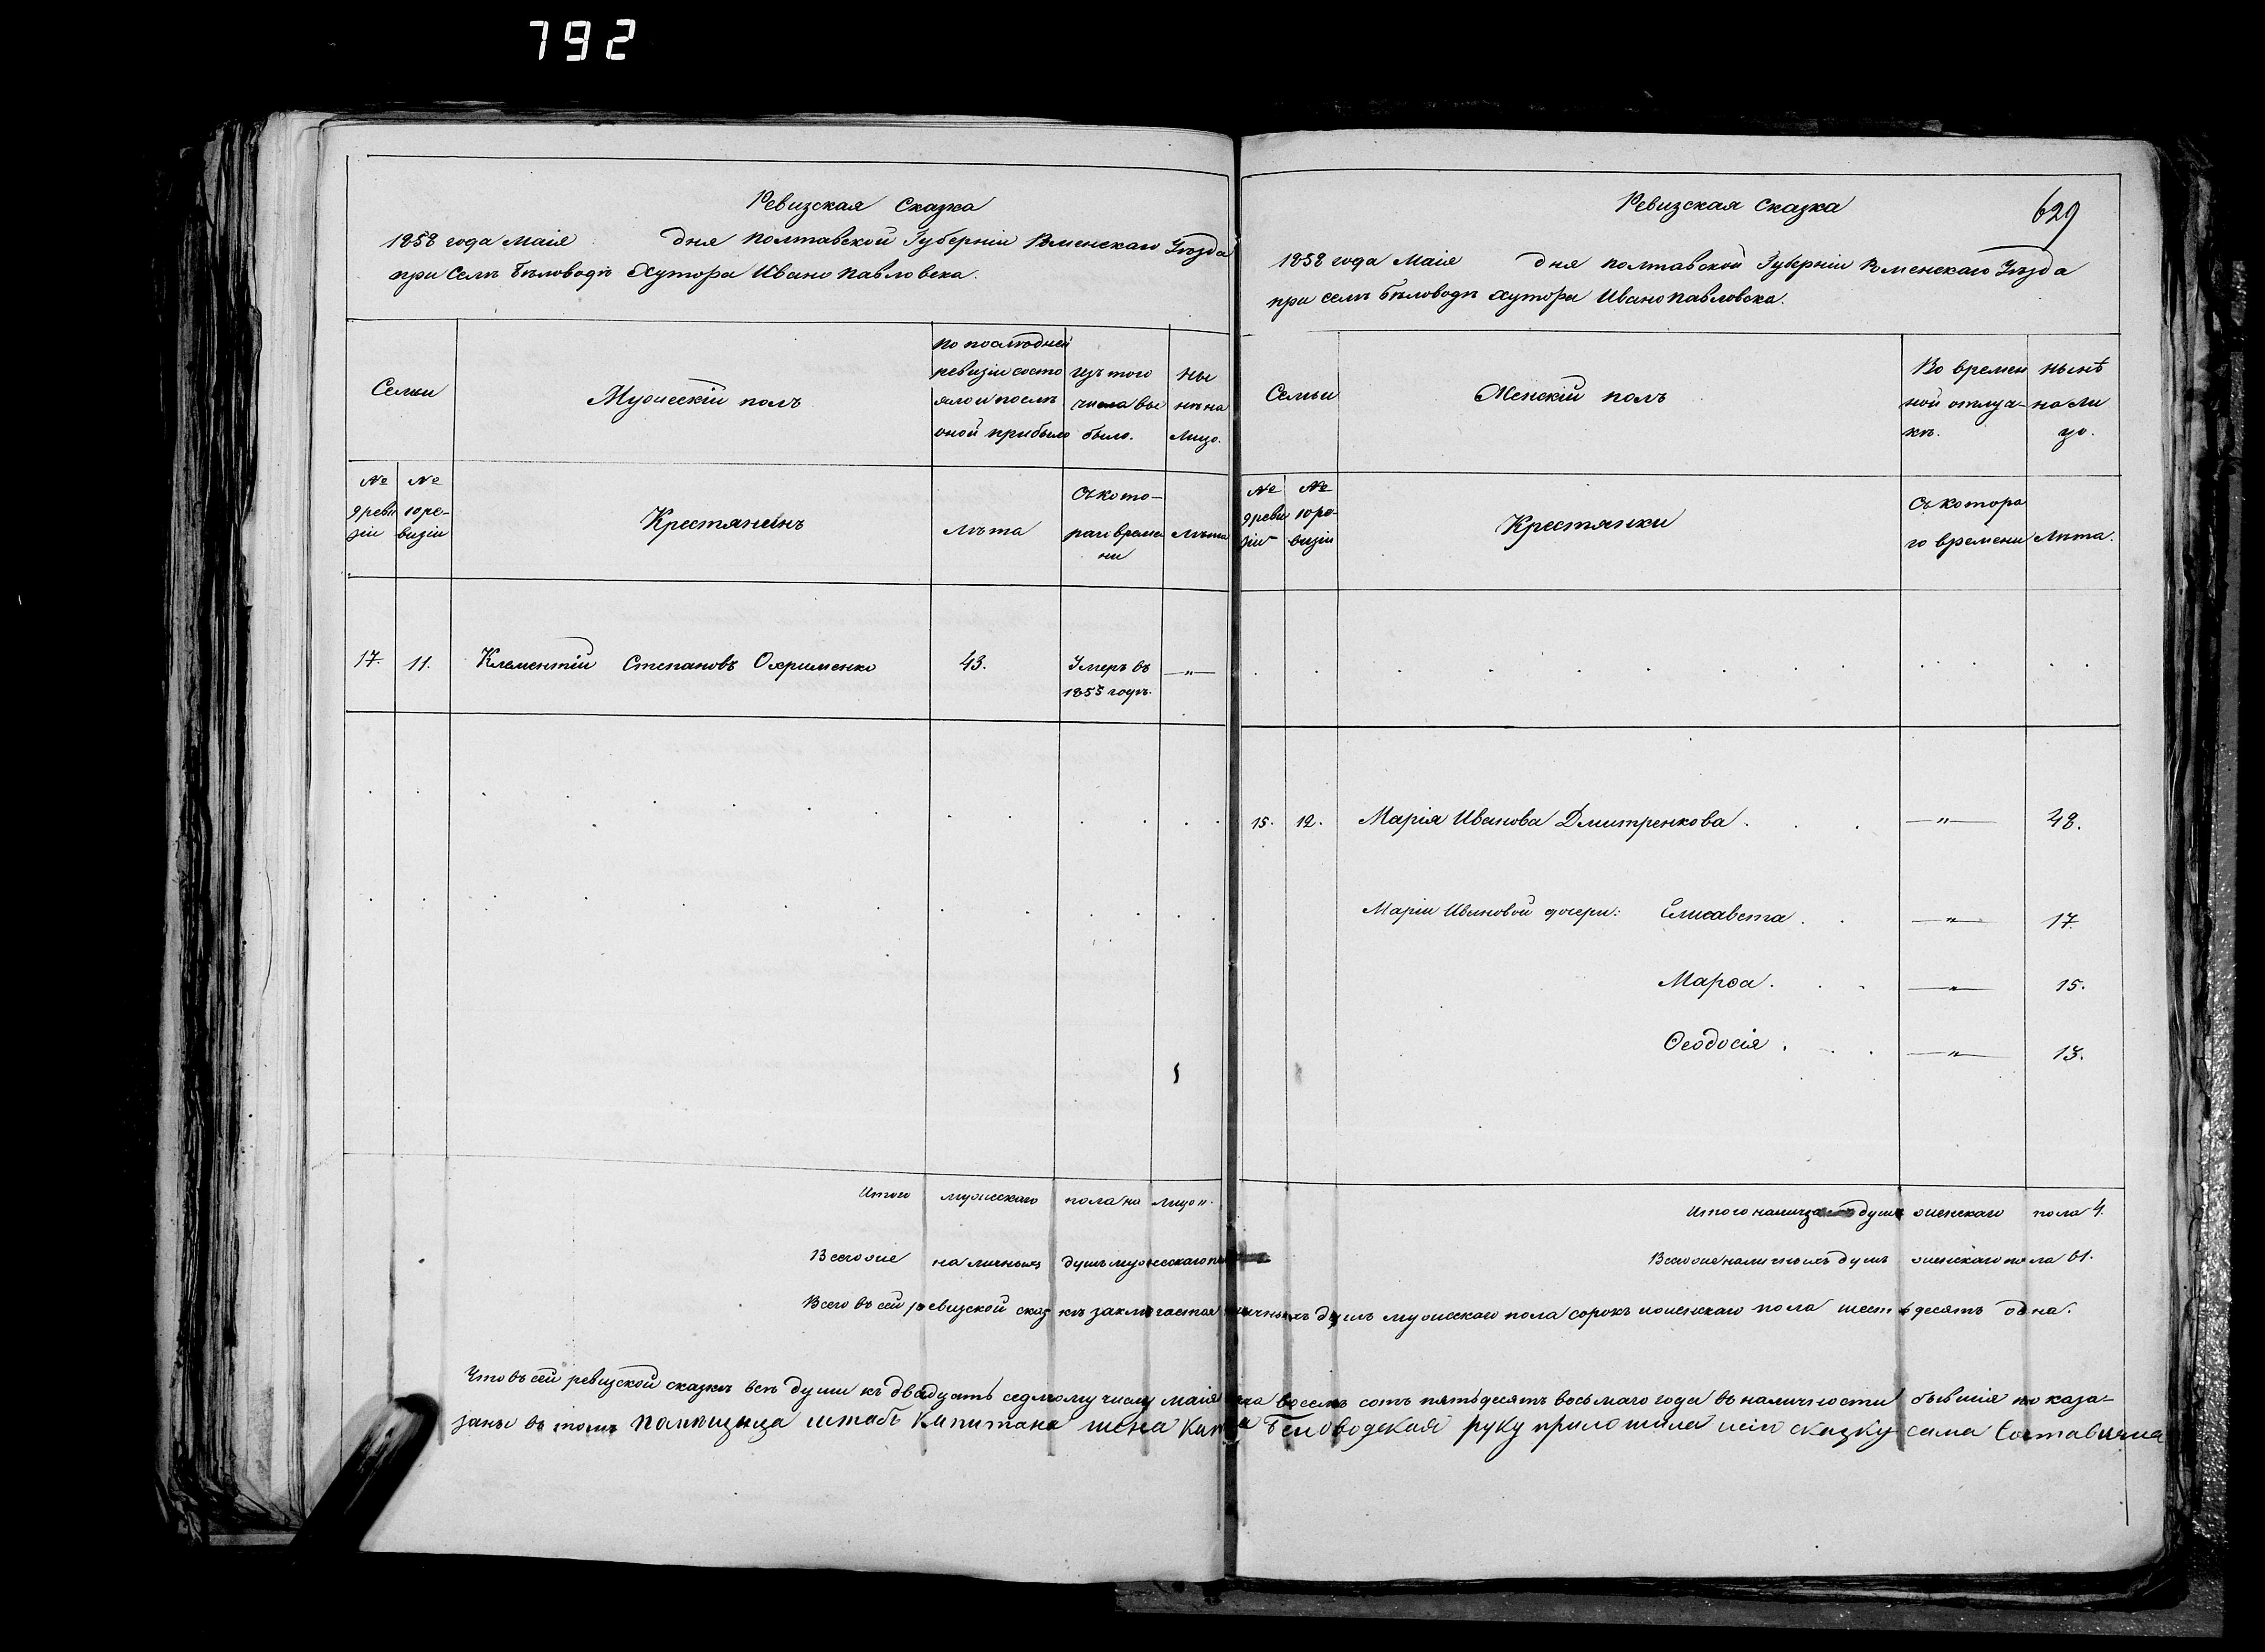 792
Ревизская Сказка
1858 года Маія дня Полтавской Губерніи Роменскаго Уѣзда
при Селѣ Бѣловодѣ Хутора Ивано Павловска.
Семьи
Мужескій полъ
По послѣдней ревизіи состояло и послѣ оной прибыло
Изъ того числа выбыло.
Нынѣ на лицо.
№ 9 ревизіи
№ 10 ревизіи
Крестянинъ
Лѣта
Съ котораго времени
Лѣта
17. 11. Климентій Степановъ Охрименко 43. Умеръ въ 1853 годѣ. — „ —
Итого мужескаго пола на лицо „.
Всего же наличныхъ душъ мужескаго
629
Ревизская Сказка
1858 года Маія дня Полтавской Губерніи Роменскаго Уѣзда
при селѣ Бѣловодѣ хутора Ивано Павловска.
Семьи
Женскій полъ
Во временной отлучкѣ.
Нынѣ на лицо.
№ 9 ревизіи
№ 10 ревизіи
Крестянки
Съ котораго времени
Лѣта.
15. 12. Марія Иванова Дмитренкова. — „ — 48.
Маріи Ивановой дочери: Елисавета. — „ — 17.
Марѳа. — „ — 15.
Ѳеодосія. — „ — 13.
Итого душъ женскаго пола 4.
Всего же наличныхъ душъ женскаго пола 61.
Всего въ сей ревизской сказкѣ заключается наличныхъ душъ мужескаго пола сорокъ и женскаго пола шестьдесятъ одна.
Что въ сей ревизской сказкѣ всѣ души къ двадцать седмому числу маія восемь сотъ пятьдесятъ восьмаго года въ наличности бывшія показа-
заны въ томъ помѣщица штабъ Капитана жена Беловодская руку приложила и сказку сама Составляла